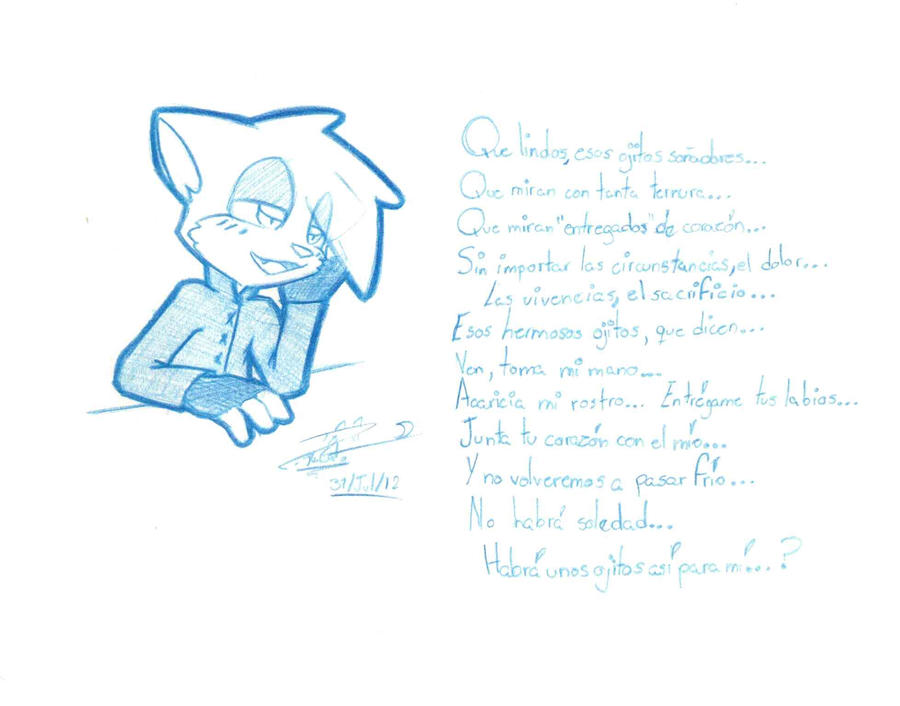 Que lindos, esos ojitos soñadores...
Que miran con tanta ternura...
Que miran "entregados" de corazón...
Sin importar las circunstancias, el dolor...
Las vivencias, el sacrificio...
Esos hermosos ojitos, que dicen...
Ven, toma mi mano...
Acaricia mi rostro... Entrégame tus labios...
Junta tu corazón con el mío...
Y no volveremos a pasar frío...
No habrá soledad...
Habrá unos ojitos así para mí...?
31/Jul/12